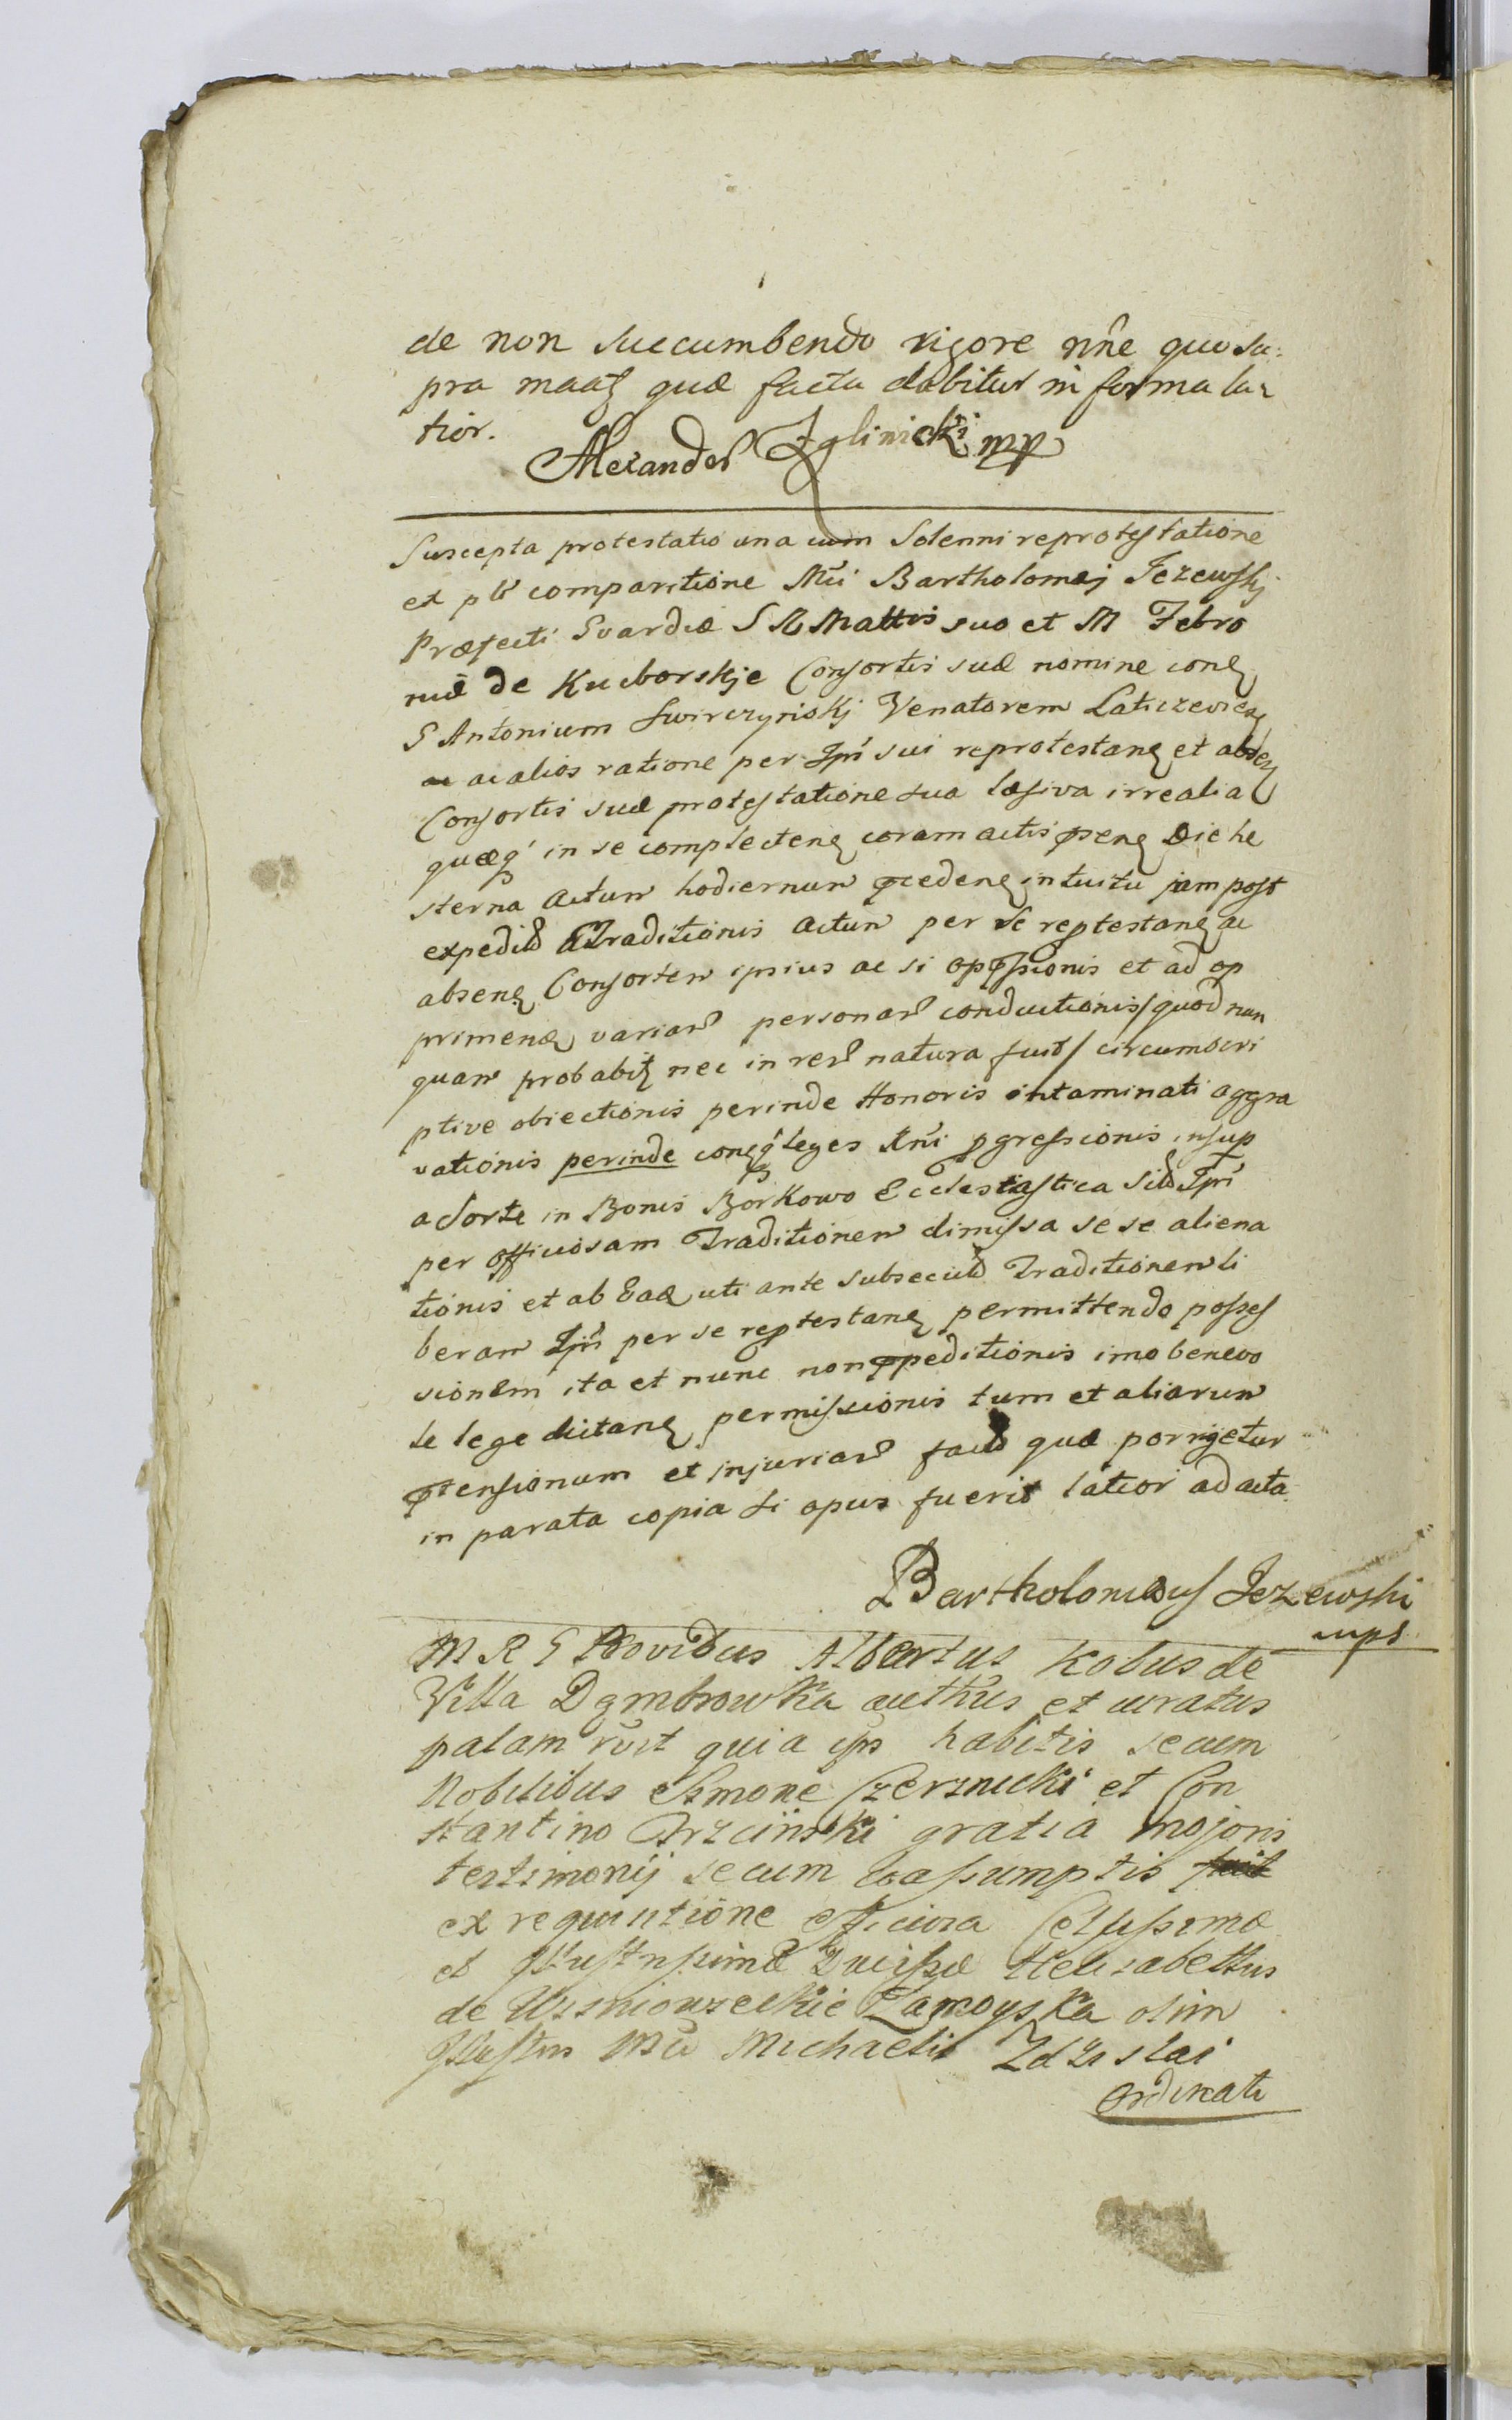 de non succumbendo vigore nñe quo su:
pra maaḡ quæ facta dabitur in forma la:
tior.
Alexander Zglinicki mp
Suscepta protestatio una cum Solenni reprotestatione
ex comparitione Mci Bartholomæj Jezewskj
Præfecti Gvardiæ S R Mattis suo et M Febro
niæ de Kuchorskje Consortis suæ nomine
G Antonium Swirczynskj Venatorem
ac alios ratione per sui reprotestan et absen
Consortis suæ protestatione sua læsiva irrealia
quæq in se complecten coram actis psen Die he
sterna actum hodiernum pceden intuitu jam post
expedit Traditionis actum per se reptestan ac
absen Consortem ipsius ac si oppssionis et ad op
primen variar personar conductionis/quod nun
quam probabit nec in rer natura fuit/ circumscri
ptive obiectionis perinde Honoris intaminati aggra
vationis perinde leges Rni pgressionis insup
a Sorte in Bonis Borkowo Ecclesiastica
per officiosam Traditionem dimissa se se aliena
tionis et ab Ead uti ante subsecut Traditionem li
beram per se reptestan permittendo posses
sionem ita et nunc non ppeditionis imo benevo
le lege dictan permissionis tum et aliarum
ptensionum et injuriar fact quæ porrigetur
in parata copia si opus fuerit latior ad acta.
Bartholomæus Jezewski
mp
M R G Providus Albertus Kobus de
Villa Dąmbrowka authus et iuratus
palam rcvt quia ips habitis secum
Nobilibus Simone Czernicki et Con
stantino gratia majoris
testimonij secum assumptis
ex requisitione officiosa Celsissimæ
et Illustrissimæ Ducissæ Helisabethus
de Wisniowzeckie Zamoyska olim
Illustris Mci Michaelis Zdzislai
Ordinati